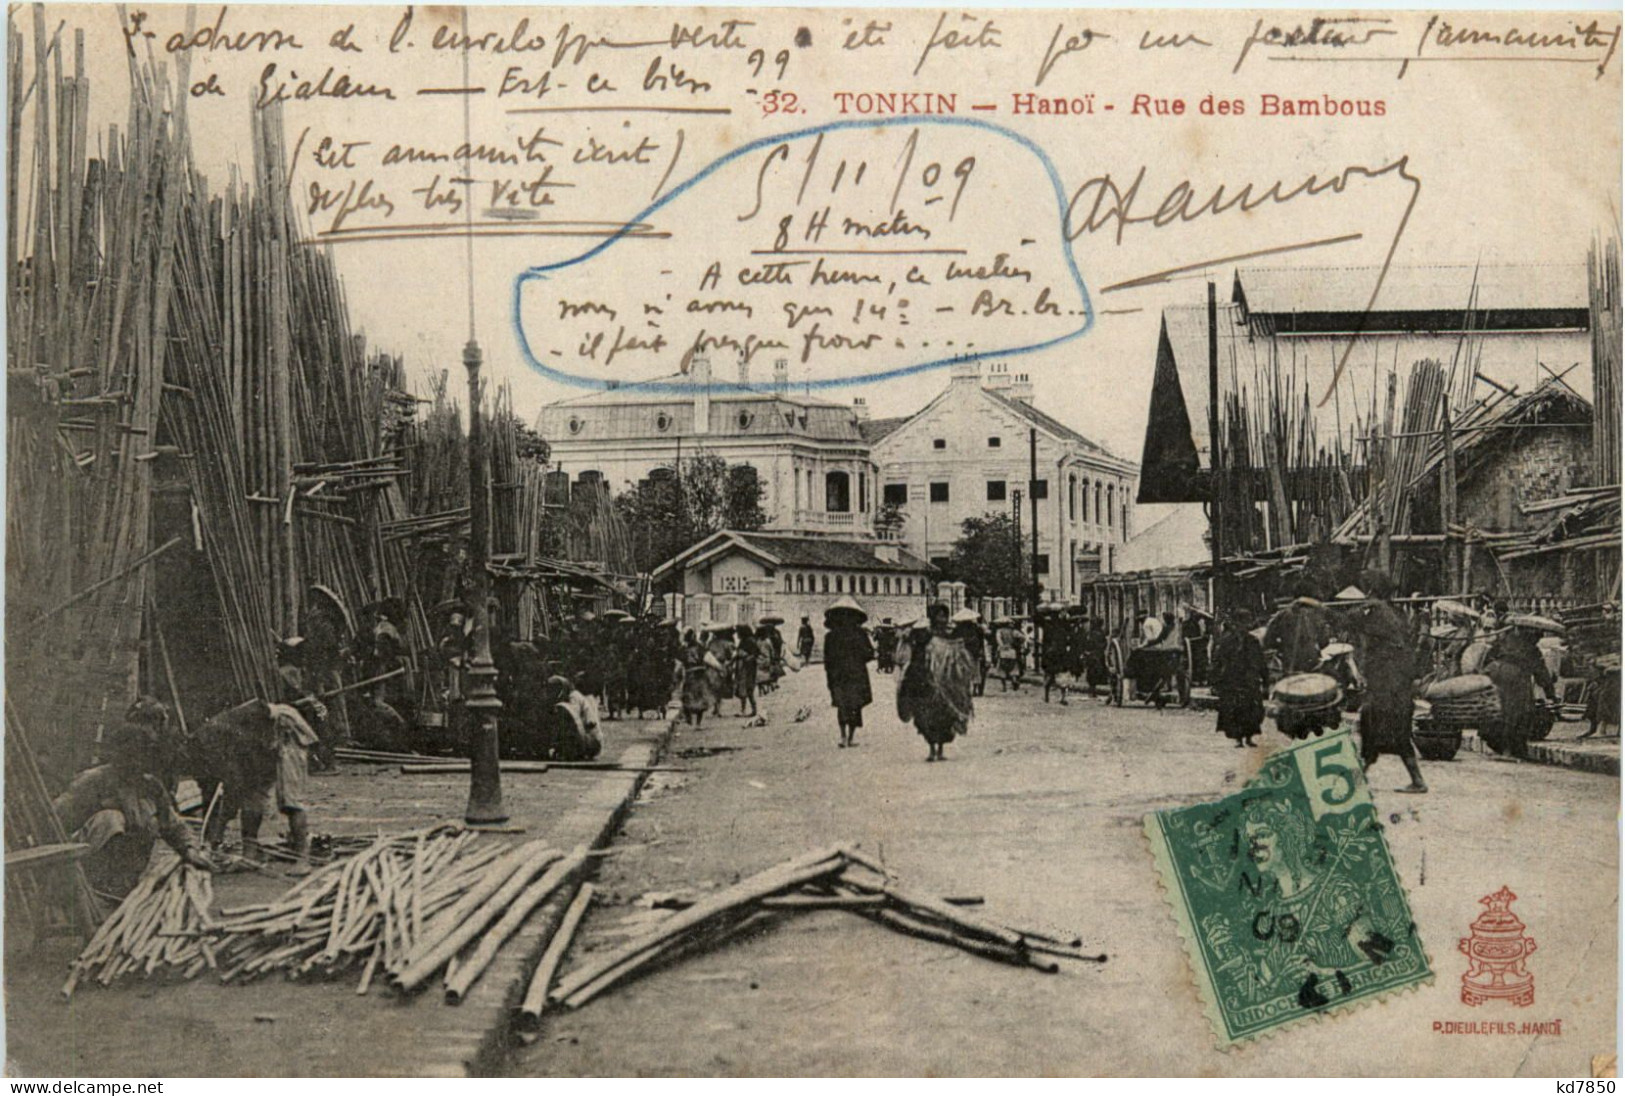 adresse de l'enveloppe verte a été faite par un facteur (annamite)
de Gialam — Est-ce bien ??
32. TONKIN — Hanoï - Rue des Bambous
(Cet annamite écrit
très vite
5/11/09
8 H matin
- A cette heure, ce matin
nous n'avons que 14° - Br. br..
- il fait presque froid ....
5
09
INDOCHINE FRANÇAISE
P. DIEULEFILS. HANOÏ
kd7850